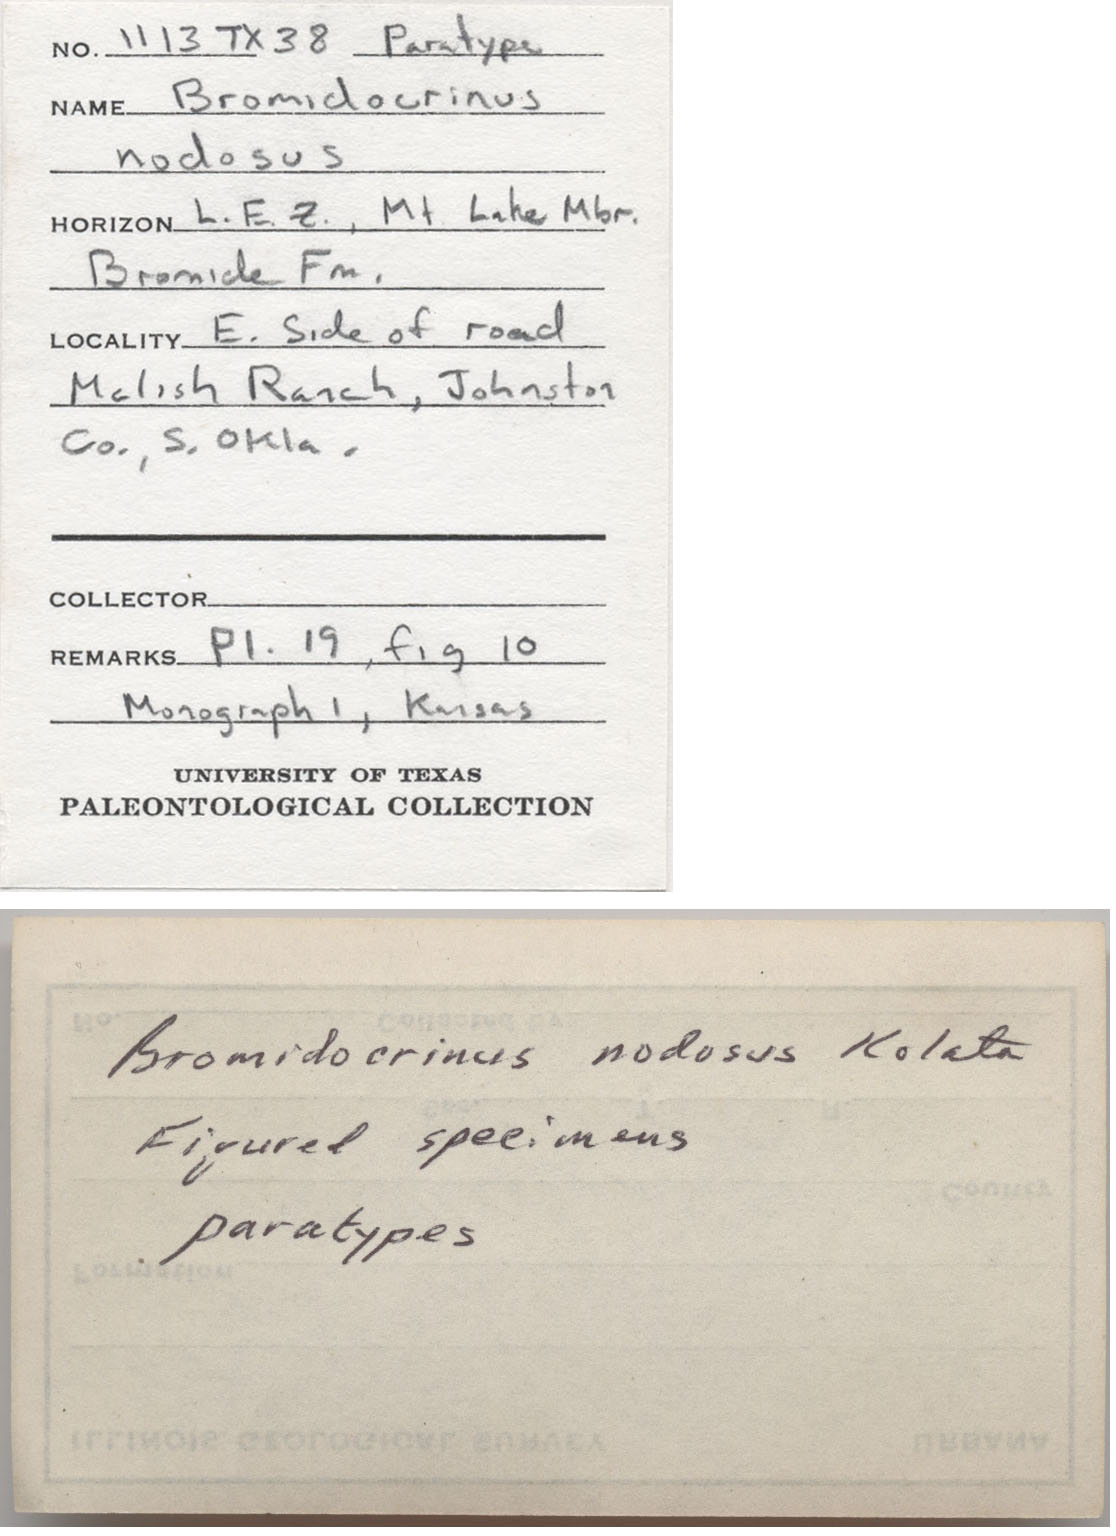 NO. 1113TX38 Paratype
NAME Bromidocrinus
nodosus
HORIZON L.E.Z., Mt Lake Mbr.
Bromide Fm.
LOCALITY E. Side of road
Mclish Ranch, Johnston
Co., S. Okla.
COLLECTOR
REMARKS Pl. 19, fig 10
Monograph 1, Kansas
UNIVERSITY OF TEXAS
PALEONTOLOGICAL COLLECTION
No. Collected by
Bromidocrinus nodosus Kolata
Sec. T. R.
Figured specimens
County
paratypes
Formation
ILLINOIS GEOLOGICAL SURVEY URBANA